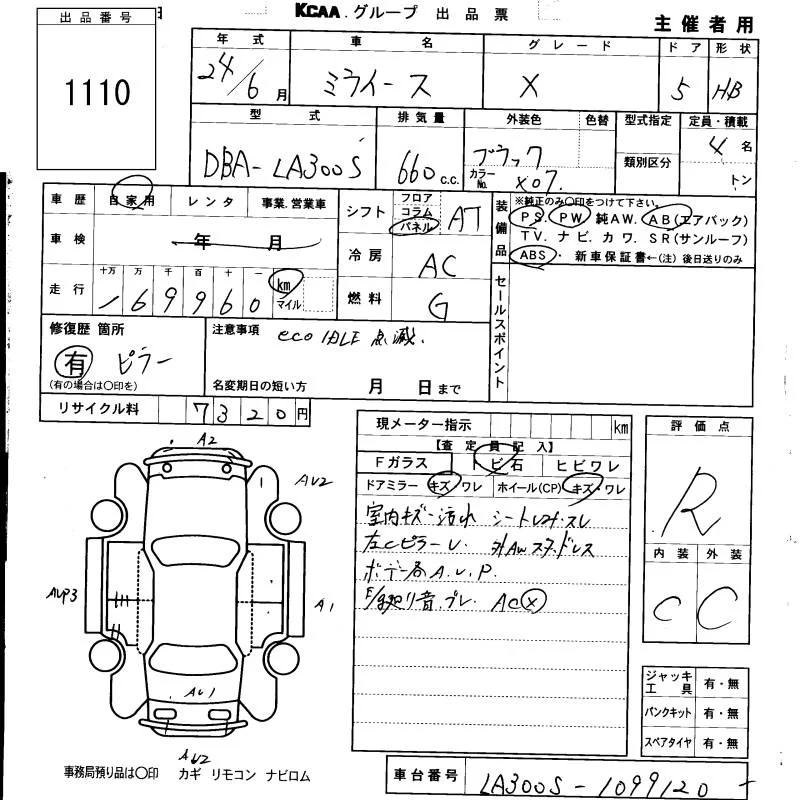 出品番号
1110
KCAA.グループ 出品票
主催者用
年式 車名 グレード ドア 形状
24/6月 ミライース X 5 HB
型式 排気量 外装色 色替 型式指定 定員・積載
DBA-LA300S 660c.c. ブラック カラーNo. X07. 類別区分 4名 トン
車歴 自家用 レンタ 事業.営業車
車検 年 月
走行 十万 万 千 百 十 一 km マイル
169960
シフト フロア コラム パネル AT
冷房 AC
燃料 G
装備品
※純正のみ〇印をつけて下さい。
PS. PW 純AW. AB(エアバック)
TV. ナビ. カワ. SR(サンルーフ)
ABS・新車保証書←(注)後日送りのみ
セールスポイント
修復歴 箇所
有 ピラー
(有の場合は〇印を)
注意事項
eco IDLE 点滅.
名変期日の短い方 月 日まで
リサイクル料 7320円
現メーター指示 km
【査定員記入】
Fガラス トビ石 ヒビワレ
ドアミラー キズ・ワレ ホイール(CP) キズ・ワレ
室内キズ・汚れ シート
左CピラーU. 外AWスタッドレス
ボデー各A.U.P.
異音.ブレ. AC X
評価点
R
内装 外装
C C
ジャッキ工具 有・無
パンクキット 有・無
スペアタイヤ 有・無
A2
AU2
AUP3
A1
AU1
AU2
事務局預り品は〇印 カギ リモコン ナビロム
車台番号 LA300S-1099120